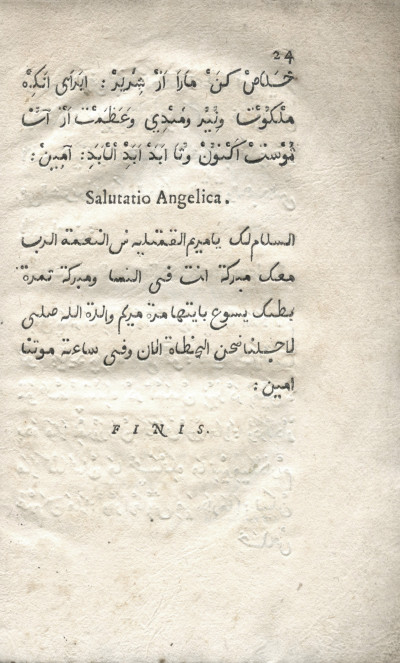 24
خَلَاصْ كُنْ مَارَا اَزْ شِرِيرْ : اَيَرَاى انَكِهْ
مَلْكُوْتْ وَنِيْرُ وَمَبْدِي وَعَظَمَتْ اَزْ آنْ
تُوْسْتْ اَكْنُوْنْ وَتَا اَبَدْ اَبَدِ اْلَابَدِ: آمِيْنْ:
Salutatio Angelica.
السلام لك يا مريم النعمة الرب
معك مبركة انت فى النسا ومبركة تمرة
بطنك يسوع مريم والدة الله صلى
لاجلنا نحن الخطاة الان وفى ساعة موتنا
امين:
FINIS.